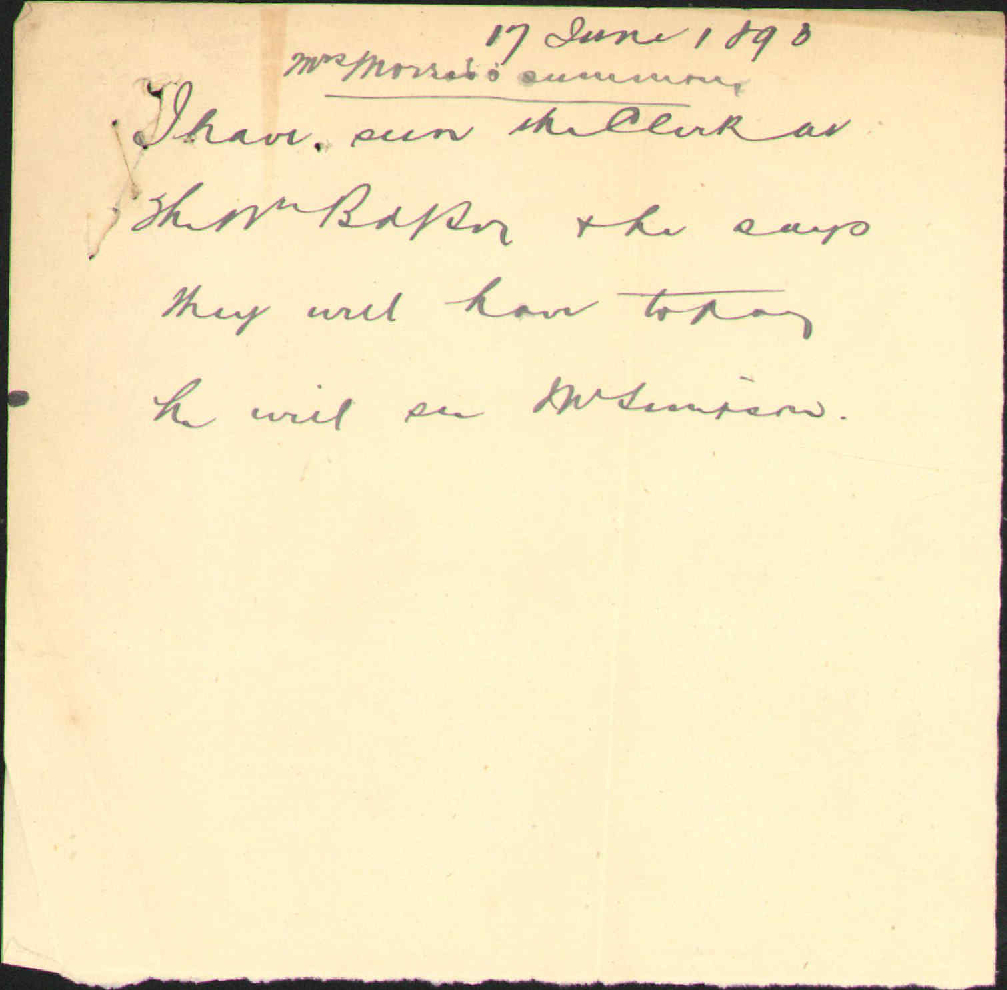 17 June 1898
Mrs Morris's summons
I have seen the Clerk at
the Wn Bd &
he says
they will have to pay
he will see Mr Simpson.